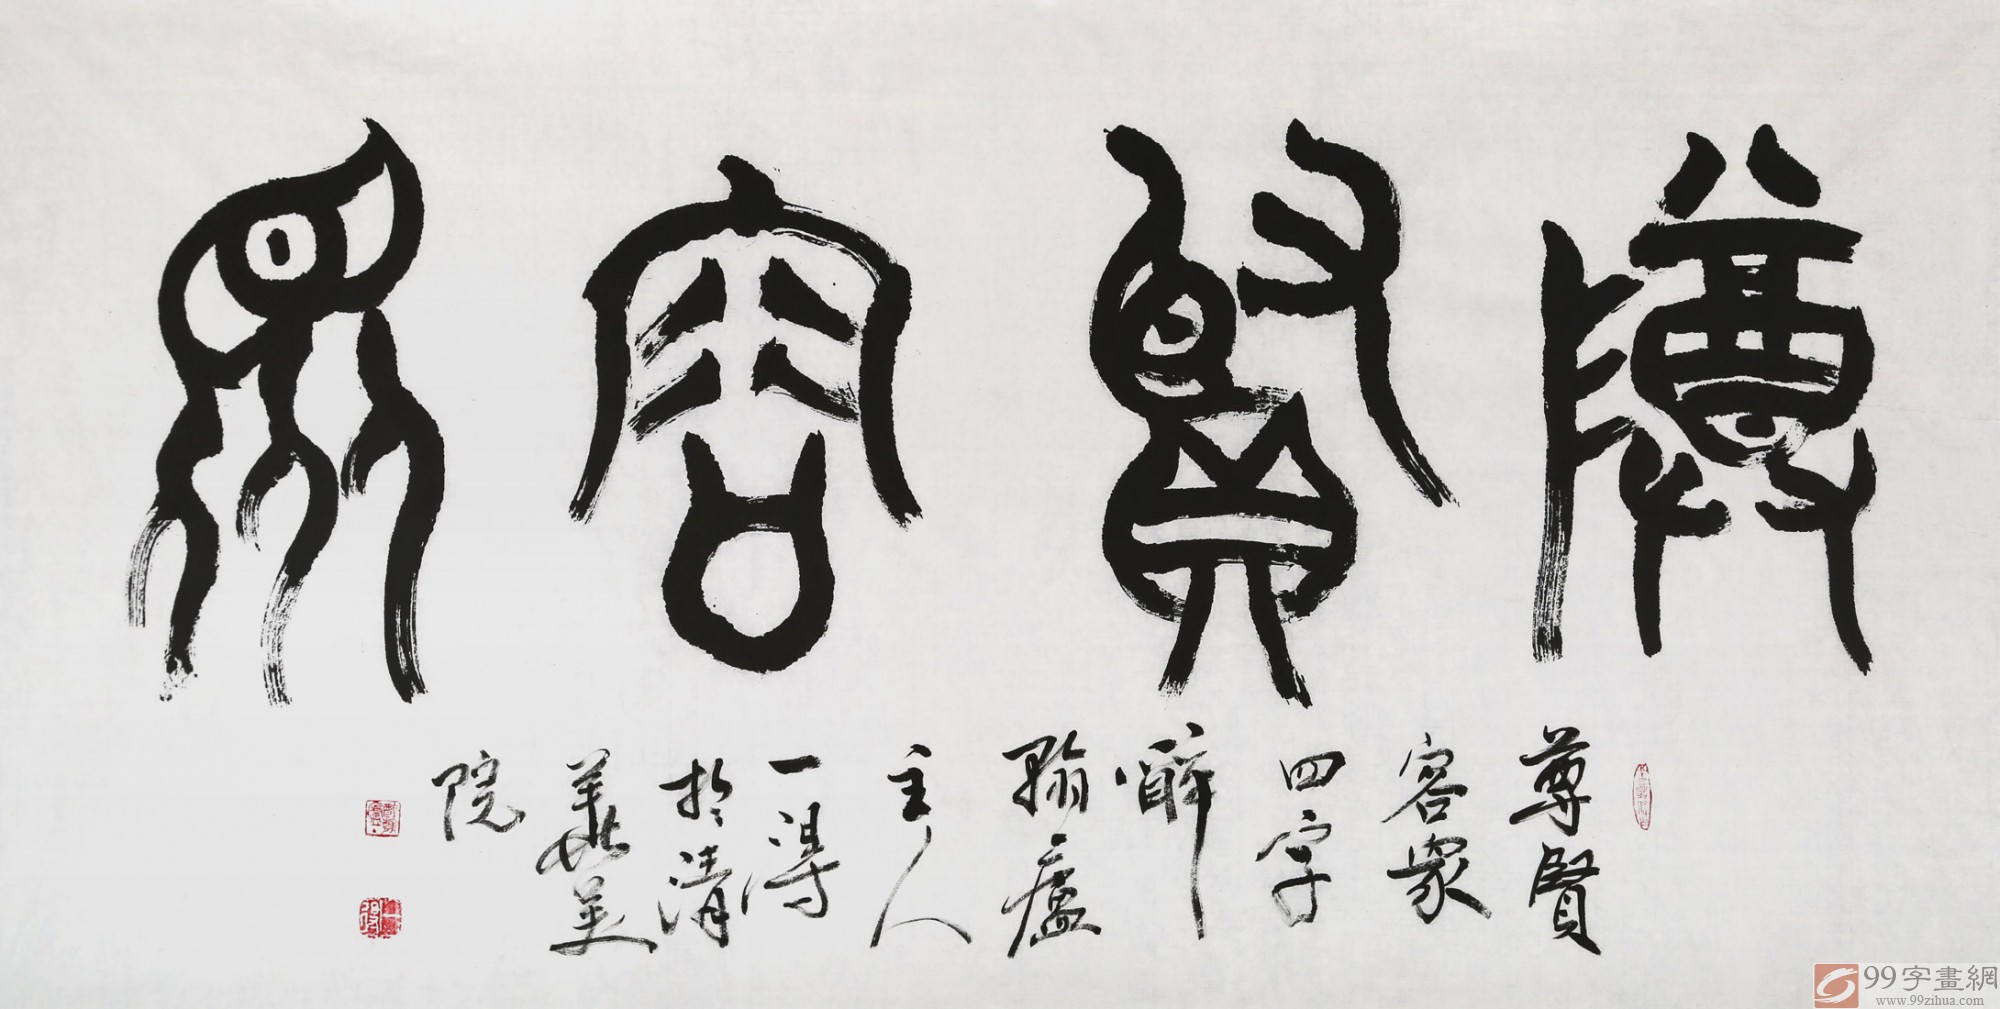 尊賢容眾
尊賢
容眾
四字
醉
翰廬
主人
一得
於清
華美
院
99字畫網
www.99zihua.com